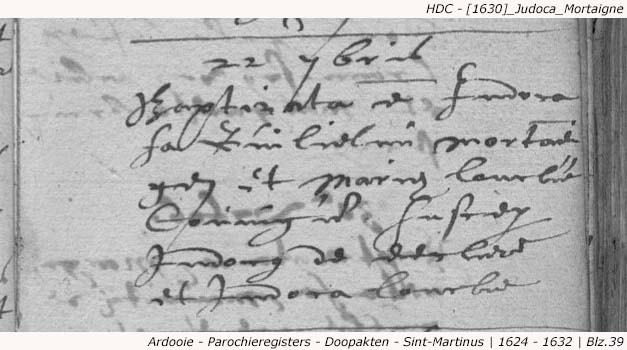 HDC - [1630]_Judoca_Mortaigne
22 7bris
Baptizata e Judoca
fa Guilielmi mortai
gne et Mariæ
Coniugū Suscep
Judocus de
et Judoca
Ardooie - Parochieregisters - Doopakten - Sint-Martinus | 1624 - 1632 | Blz.39